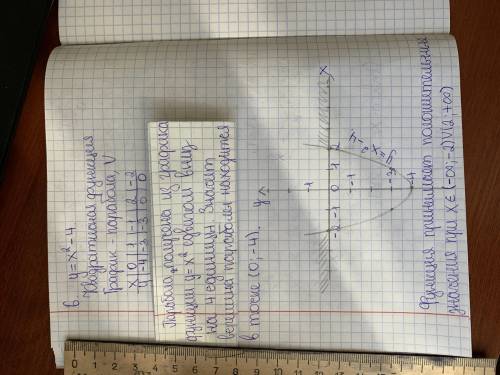 6. y = x² - 4
Квадратичная функция
График - парабола, V
x | 0 | 1 | -1 | 2 | -2
y | -4 | -3 | -3 | 0 | 0
Парабола, получена из графика
функции y = x² сдвигом вниз
на 4 единицы. Значит
вершина параболы находится
в точке (0; -4).
y
x
1
-1
-3
-4
-2 -1 0 1 2
y = x² - 4
Функция принимает положительные
значения при x ∈ (-∞; -2) V (2; +∞)
0 1 2 3 4 5 6 7 8 9 10 11 12 13 14